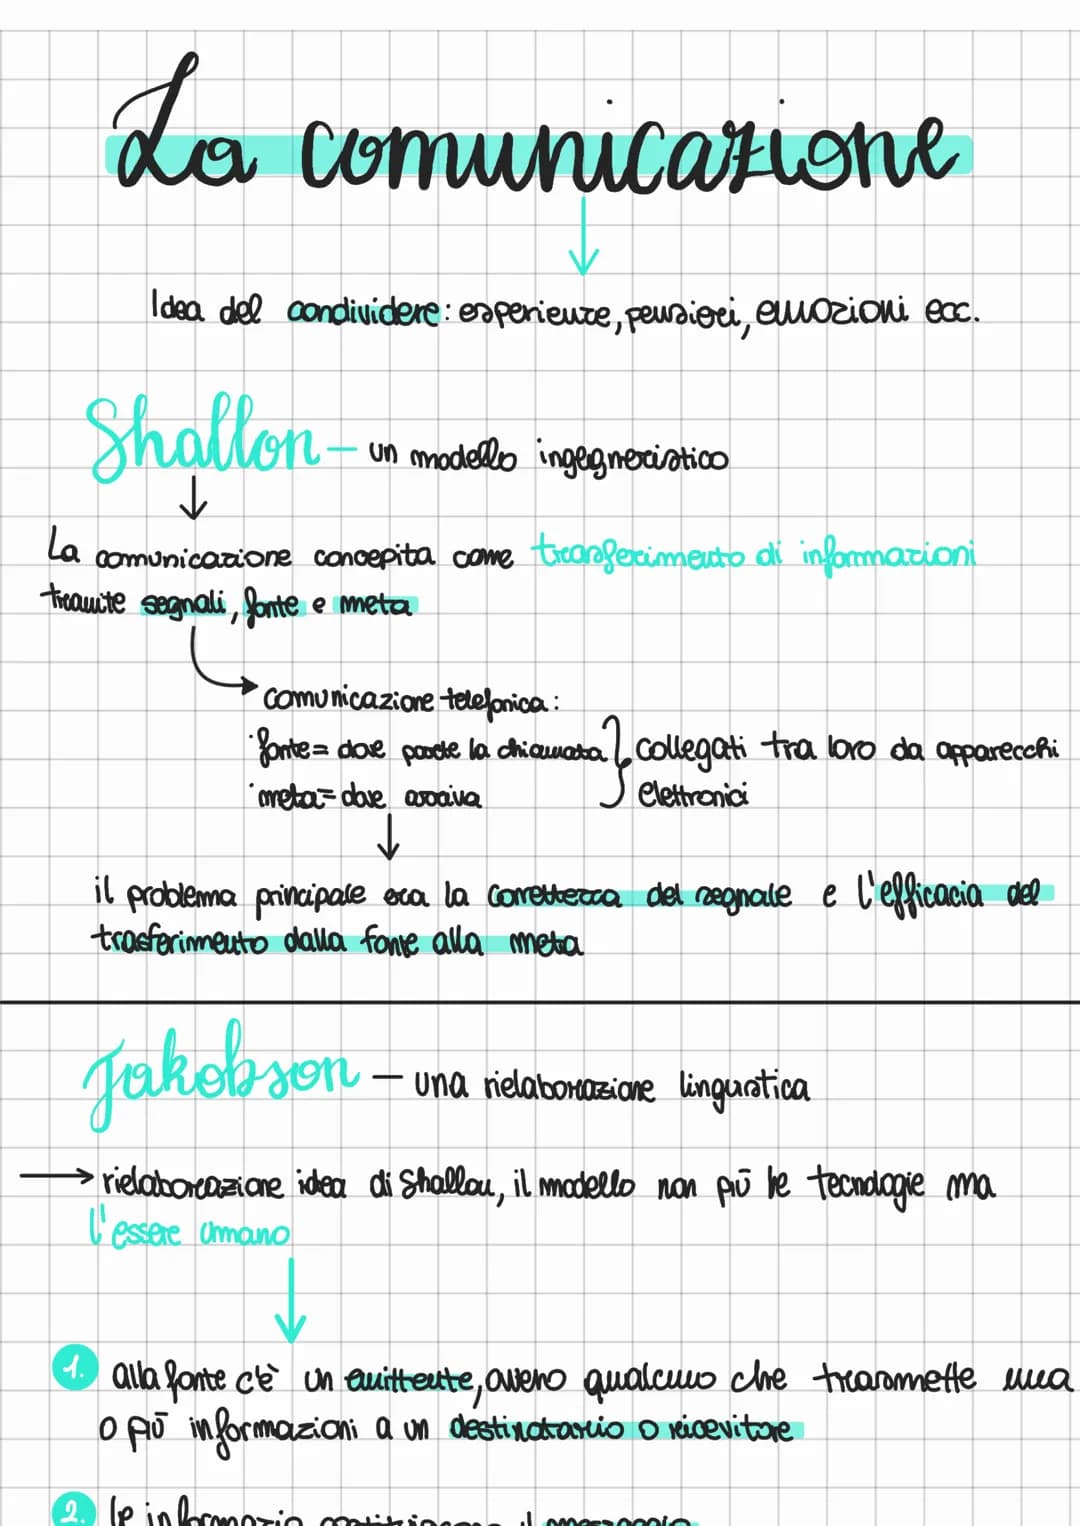 La comunicazione
Idea del condividere: esperienze, pensieri, emozioni ecc.
Shallon – un modello ingegneristico
La comunicazione concepita come trasferimento di informazioni
tramite segnali, fonte e meta
comunicazione telefonica:
· fonte = dove parte la chiamata } collegati tra loro da apparecchi
· meta = dove arriva elettronici
il problema principale era la correttezza del segnale e l'efficacia del
trasferimento dalla fonte alla meta
Jakobson – una rielaborazione linguistica
→ rielaborazione idea di Shallon, il modello non più le tecnologie ma
l'essere umano
1. alla fonte c'è un emittente, ovvero qualcuno che trasmette una
o più informazioni a un destinatario o ricevitore
2. le informazio costituiscono il messaggio